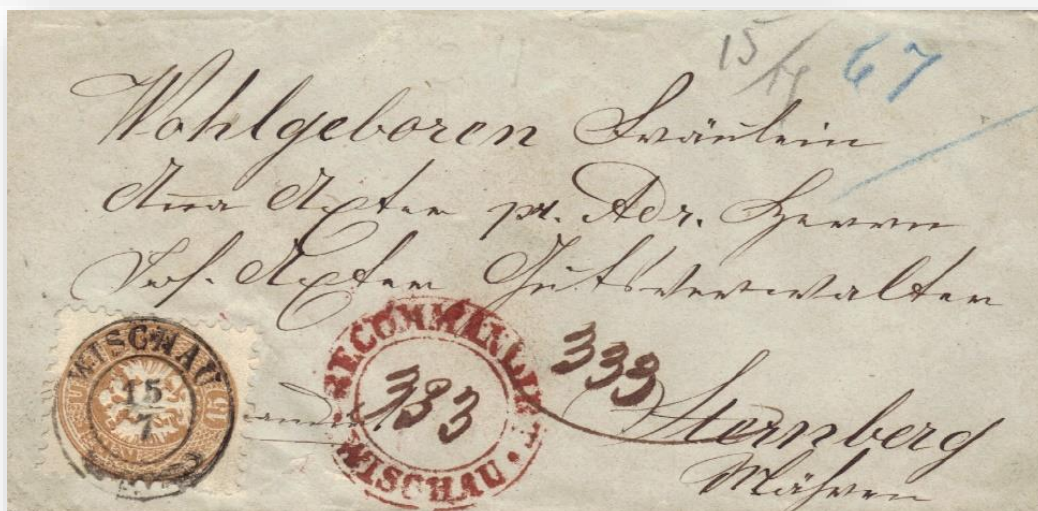 15/14 67
Wohlgeboren Fräulein
Anna Axter pr. Adr. Herrn
Jos. Axter Gutsverwalter
WISCHAU
15
7
15
RECOMMANDIRT
WISCHAU
383
333
Sternberg
Mähren